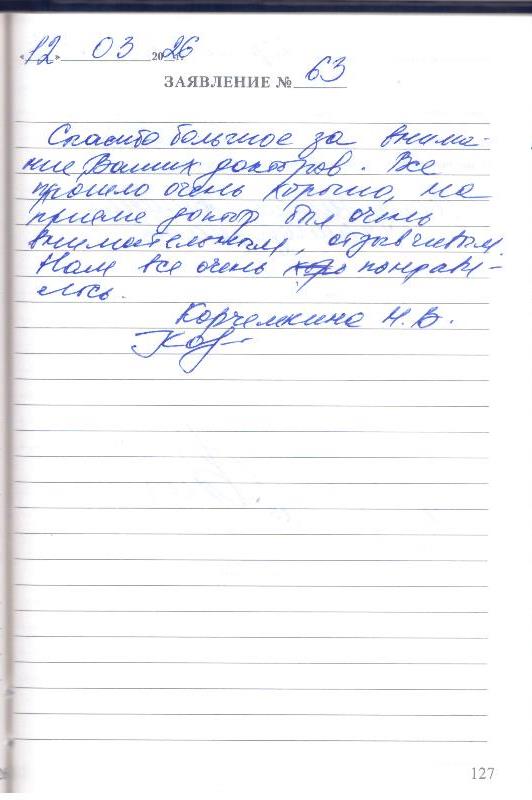 «12» 03 2026
ЗАЯВЛЕНИЕ № 63
Спасибо большое за внима-
ние Ваших докторов. Все
прошло очень хорошо, на
приеме доктор был очень
внимательным, отзывчивым.
Нам все очень понрави-
лось.
Корчемкина Н. В.
127